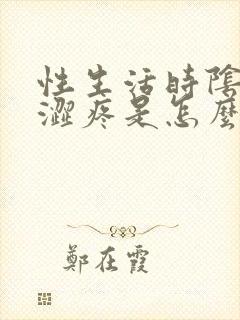 性生活時陰
澀疼是怎麼
鄭在霞